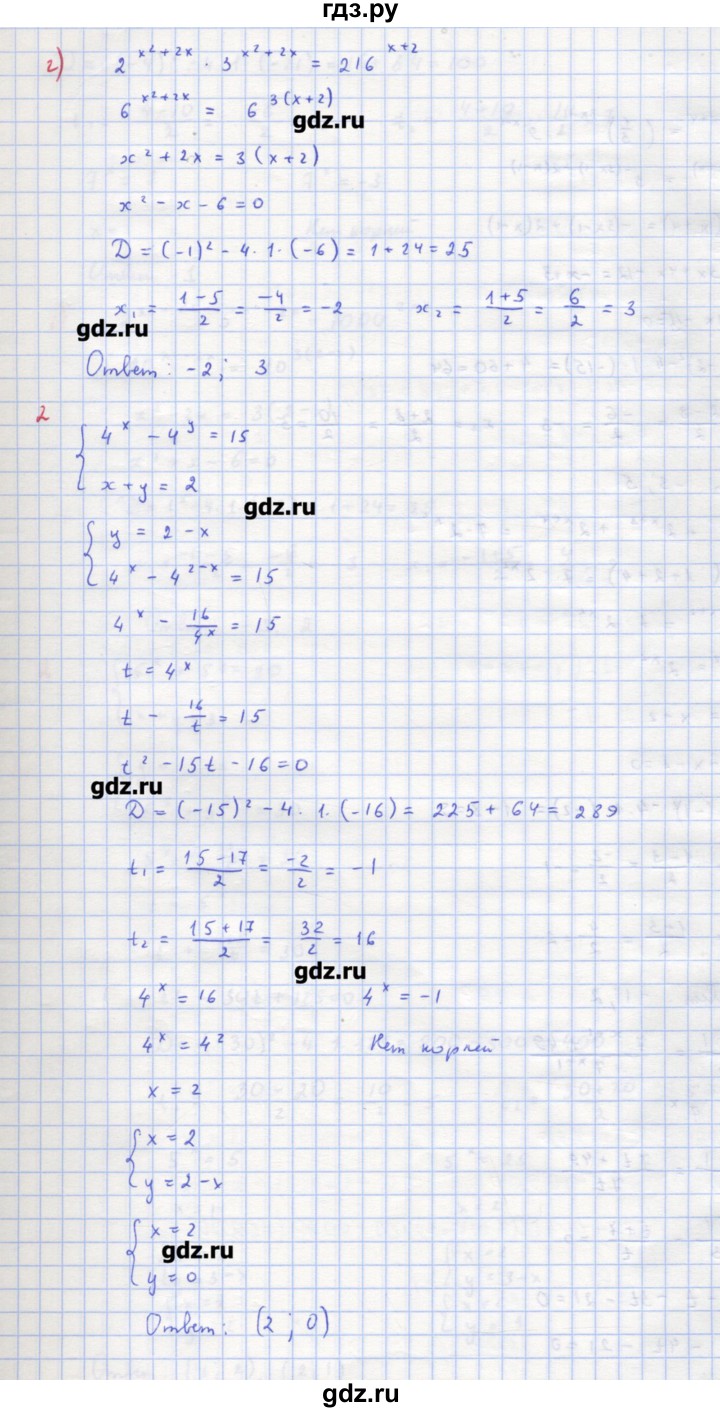 гдз.ру
г) 2^(x²+2x) · 3^(x²+2x) = 216^(x+2)
6^(x²+2x) = 6^(3(x+2))
gdz.ru
x² + 2x = 3(x+2)
x² - x - 6 = 0
D = (-1)² - 4·1·(-6) = 1+24 = 25
x₁ = (1-5)/2 = -4/2 = -2    x₂ = (1+5)/2 = 6/2 = 3
gdz.ru
Ответ: -2; 3
2
{ 4^x - 4^y = 15
x + y = 2
gdz.ru
{ y = 2 - x
4^x - 4^(2-x) = 15
4^x - 16/4^x = 15
t = 4^x
t - 16/t = 15
t² - 15t - 16 = 0
gdz.ru
D = (-15)² - 4·1·(-16) = 225 + 64 = 289
t₁ = (15-17)/2 = -2/2 = -1
t₂ = (15+17)/2 = 32/2 = 16
gdz.ru
4^x = 16    4^x = -1
4^x = 4²    Нет корней
x = 2
{ x = 2
y = 2 - x
{ x = 2
gdz.ru
y = 0
Ответ: (2; 0)
gdz.ru